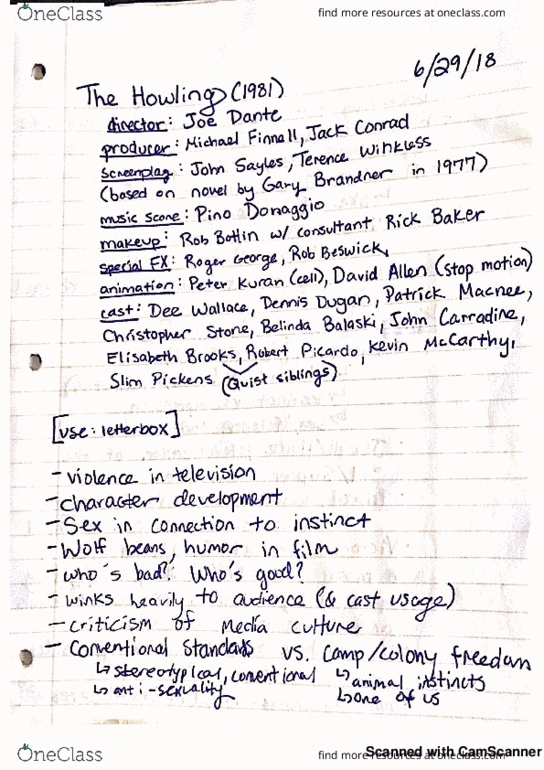 OneClass
find more resources at oneclass.com
6/29/18
The Howling (1981)
director: Joe Dante
producer: Michael Finnell, Jack Conrad
screenplay: John Sayles, Terence Winkless
(based on novel by Gary Brandner in 1977)
music score: Pino Donaggio
makeup: Rob Botlin w/ consultant Rick Baker
special FX: Roger George, Rob Beswick,
animation: Peter Kuran (cell), David Allen (stop motion)
cast: Dee Wallace, Dennis Dugan, Patrick Macnee,
Christopher Stone, Belinda Balaski, John Carradine,
Elisabeth Brooks, Robert Picardo, Kevin McCarthy,
Slim Pickens (Quist siblings)
[use: letterbox]
- violence in television
- character development
- Sex in connection to instinct
- Wolf beans, humor in film
- who's bad? Who's good?
- winks heavily to audience (& cast usage)
- criticism of media culture
- Conventional Standards vs. camp/colony freedom
↳ stereotypical, conventional ↳ animal instincts
↳ anti-sexuality ↳ one of us
OneClass
find more resources at oneclass.com
Scanned with CamScanner